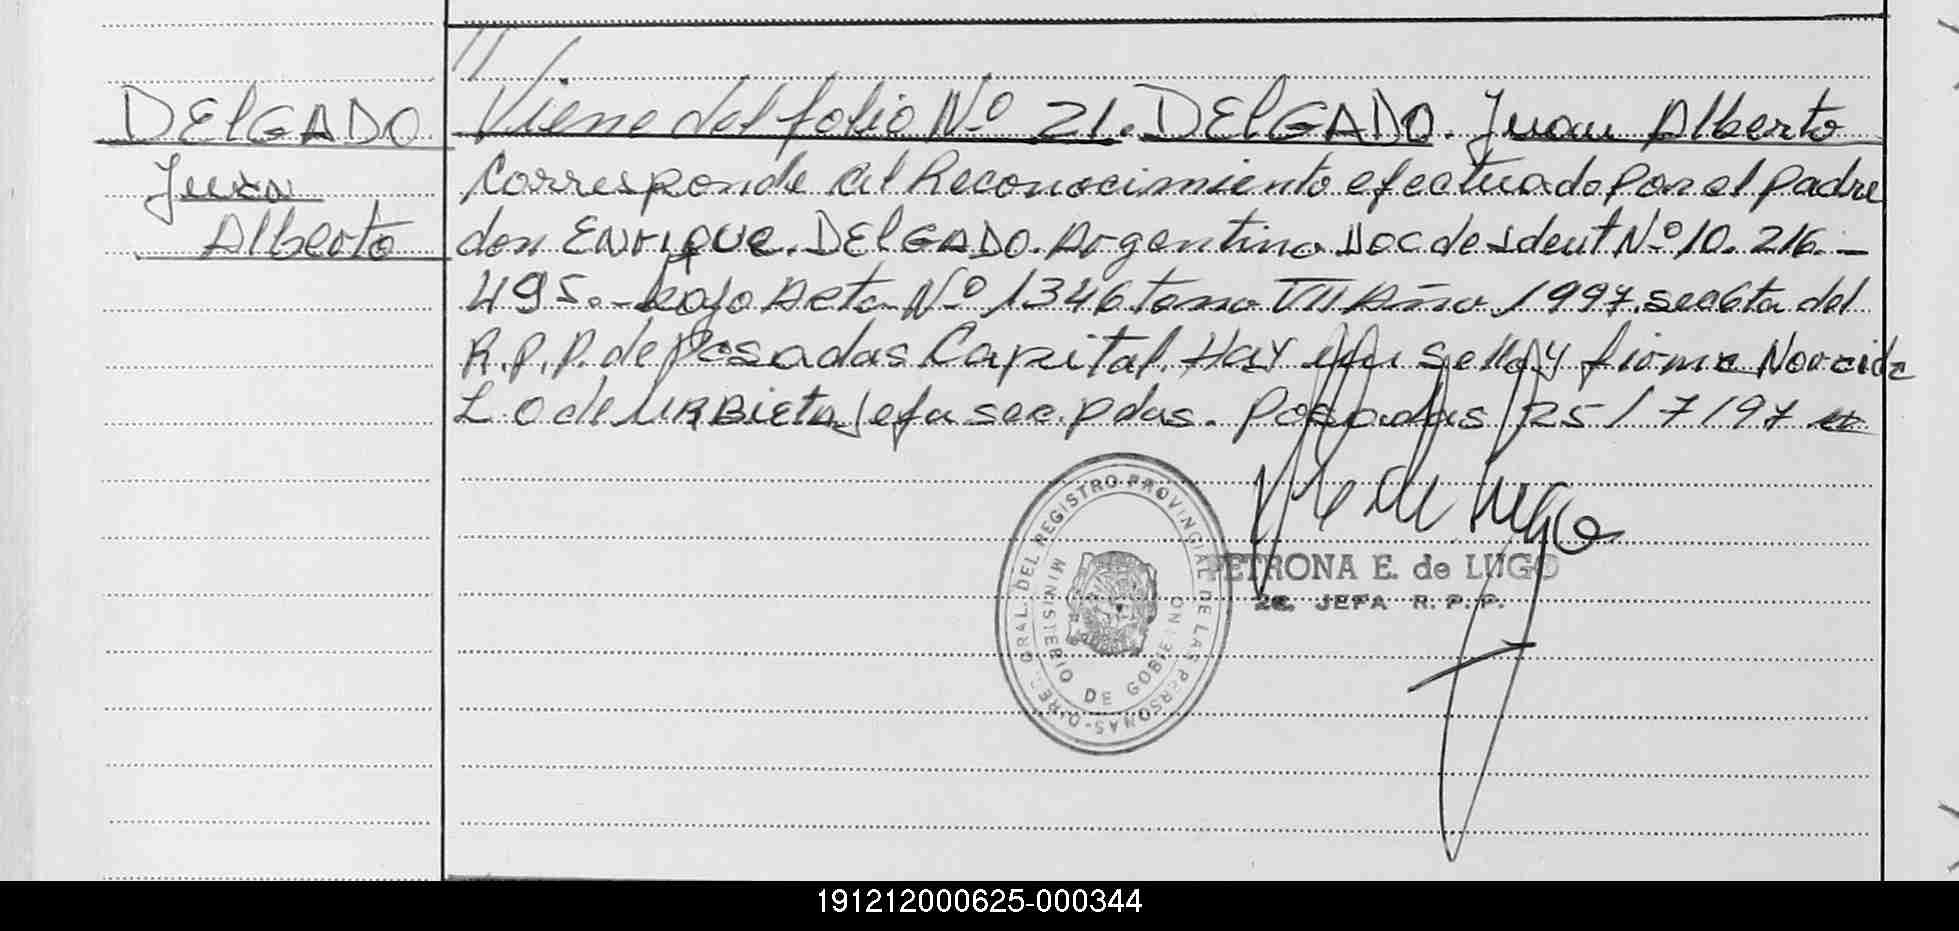 DELGADO
Juan
Alberto
Viene del folio Nº 21. DELGADO. Juan Alberto
Corresponde al Reconocimiento efectuado por el padre
don ENRIQUE. DELGADO. Argentino Doc de Ident Nº 10. 216.-
495.- bajo Acta Nº 1346 tomo VII Año 1997. secc 6ta del
R.P.P. de Posadas Capital. Hay un sello y firma
L.O de URBIETA Jefa sec. pdas. Posadas 25/7/97
DIREC. GRAL. DEL REGISTRO PROVINCIAL DE LAS PERSONAS-
MINISTERIO DE GOBIERNO
PETRONA E. de LUGO
2a. JEFA R.P.P.
191212000625-000344